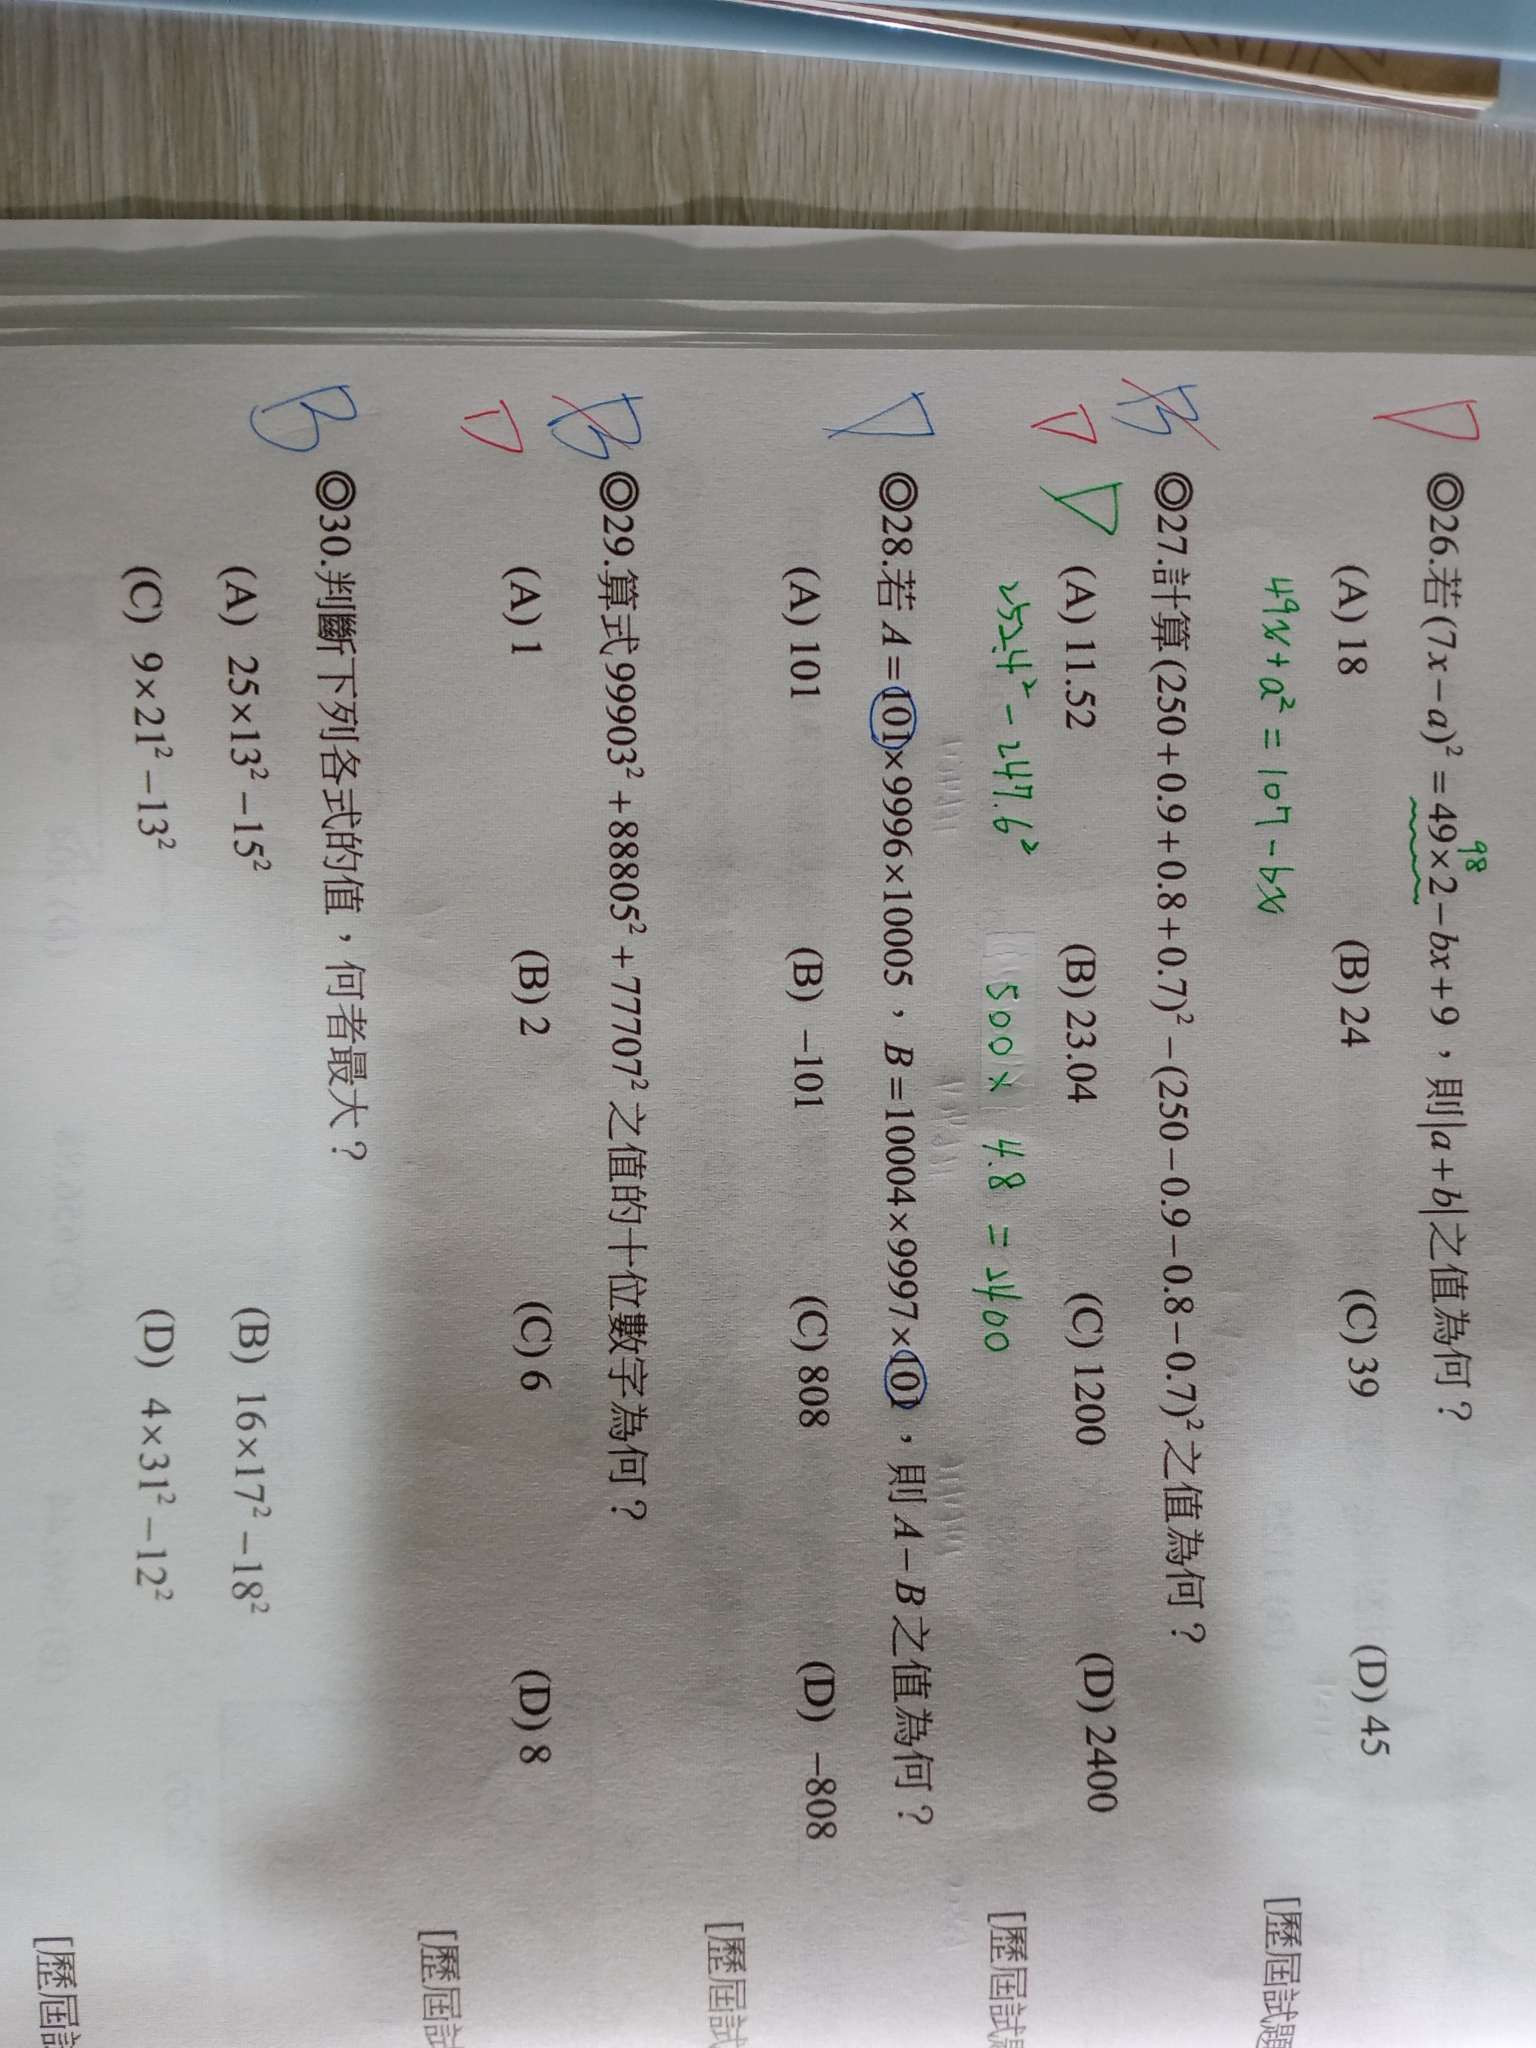 D
◎26.若(7x−a)²=49×2−bx+9，則|a+b|之值為何？
98
(A) 18 (B) 24 (C) 39 (D) 45
49x+a²=107-bx
[歷屆試題
B
D
D
◎27.計算(250+0.9+0.8+0.7)²−(250−0.9−0.8−0.7)²之值為何？
(A) 11.52 (B) 23.04 (C) 1200 (D) 2400
252.4²-247.6² 500× 4.8 = 2400
[歷屆試題
D
◎28.若A=101×9996×10005，B=10004×9997×101，則A−B之值為何？
(A) 101 (B) −101 (C) 808 (D) −808
[歷屆試
B
D
◎29.算式99903²+88805²+77707²之值的十位數字為何？
(A) 1 (B) 2 (C) 6 (D) 8
[歷屆試
B
◎30.判斷下列各式的值，何者最大？
(A) 25×13²−15² (B) 16×17²−18²
(C) 9×21²−13² (D) 4×31²−12²
[歷屆試